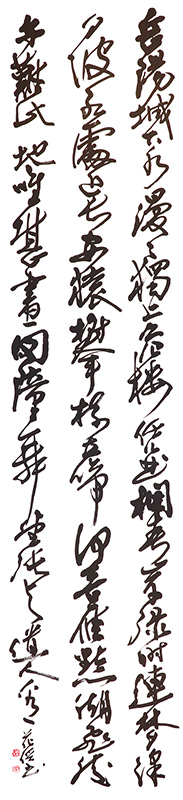 岳陽城下水漫々獨上危楼凭曲欄春岸緑時連夢澤
夕波紅處近長安猿攀樹立啼何苦雁點湖飛渡
亦難此地唯堪畫圖障華堂張与貴人看